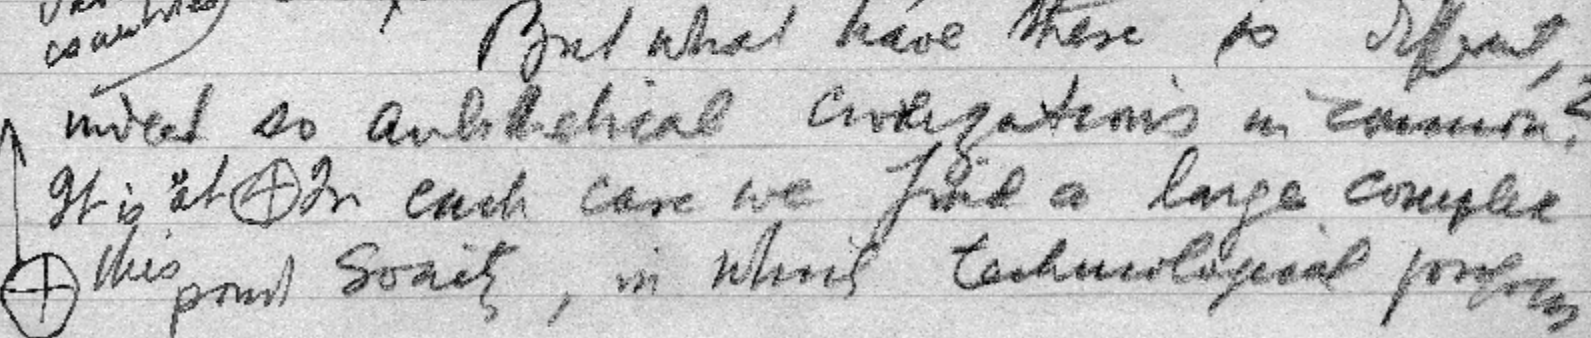 countries
But what have these so different,
indeed so antithetical civilizations in common?
It is at ⊕ In each case we find a large complex
⊕ this point Society, in which technological progress